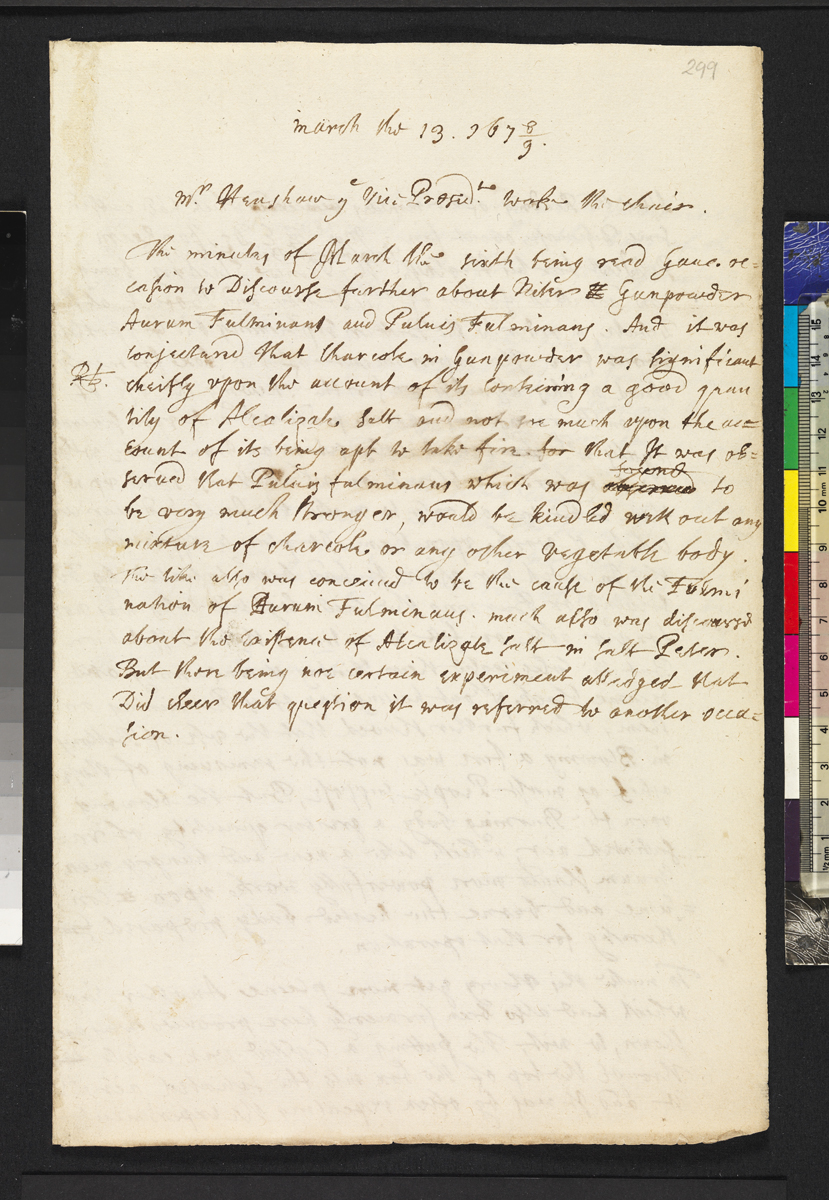 299
march the 13. 167 8/9.
mr. Henshaw ye Vice Presidt. took the chair.
The minutes of March the sixth being read Gaue oc=
casion to Discourse further about Niter & Gunpowder
Aurum Fulminans and Puluis Fulminans. And it was
conjectured that Charcole in Gunpowder was significant
cheifly vpon the account of its Containing a good quan
tity of Alcalizate salt and not soe much vpon the ac=
count of its being apt to take fire. for that It was ob=
serued that Puluis fulminans which was found to
be very much stronger, would be kindled without any
mixture of charcole or any other vegetable body.
The like also was conceiued to be the cause of the Fulmi
nation of Aurum Fulminans. much also was discoursd
about the existence of Alcalizate salt in salt Peter.
But there being noe certain experiment alledged that
Did cleer that question it was referred to another occa=
sion.